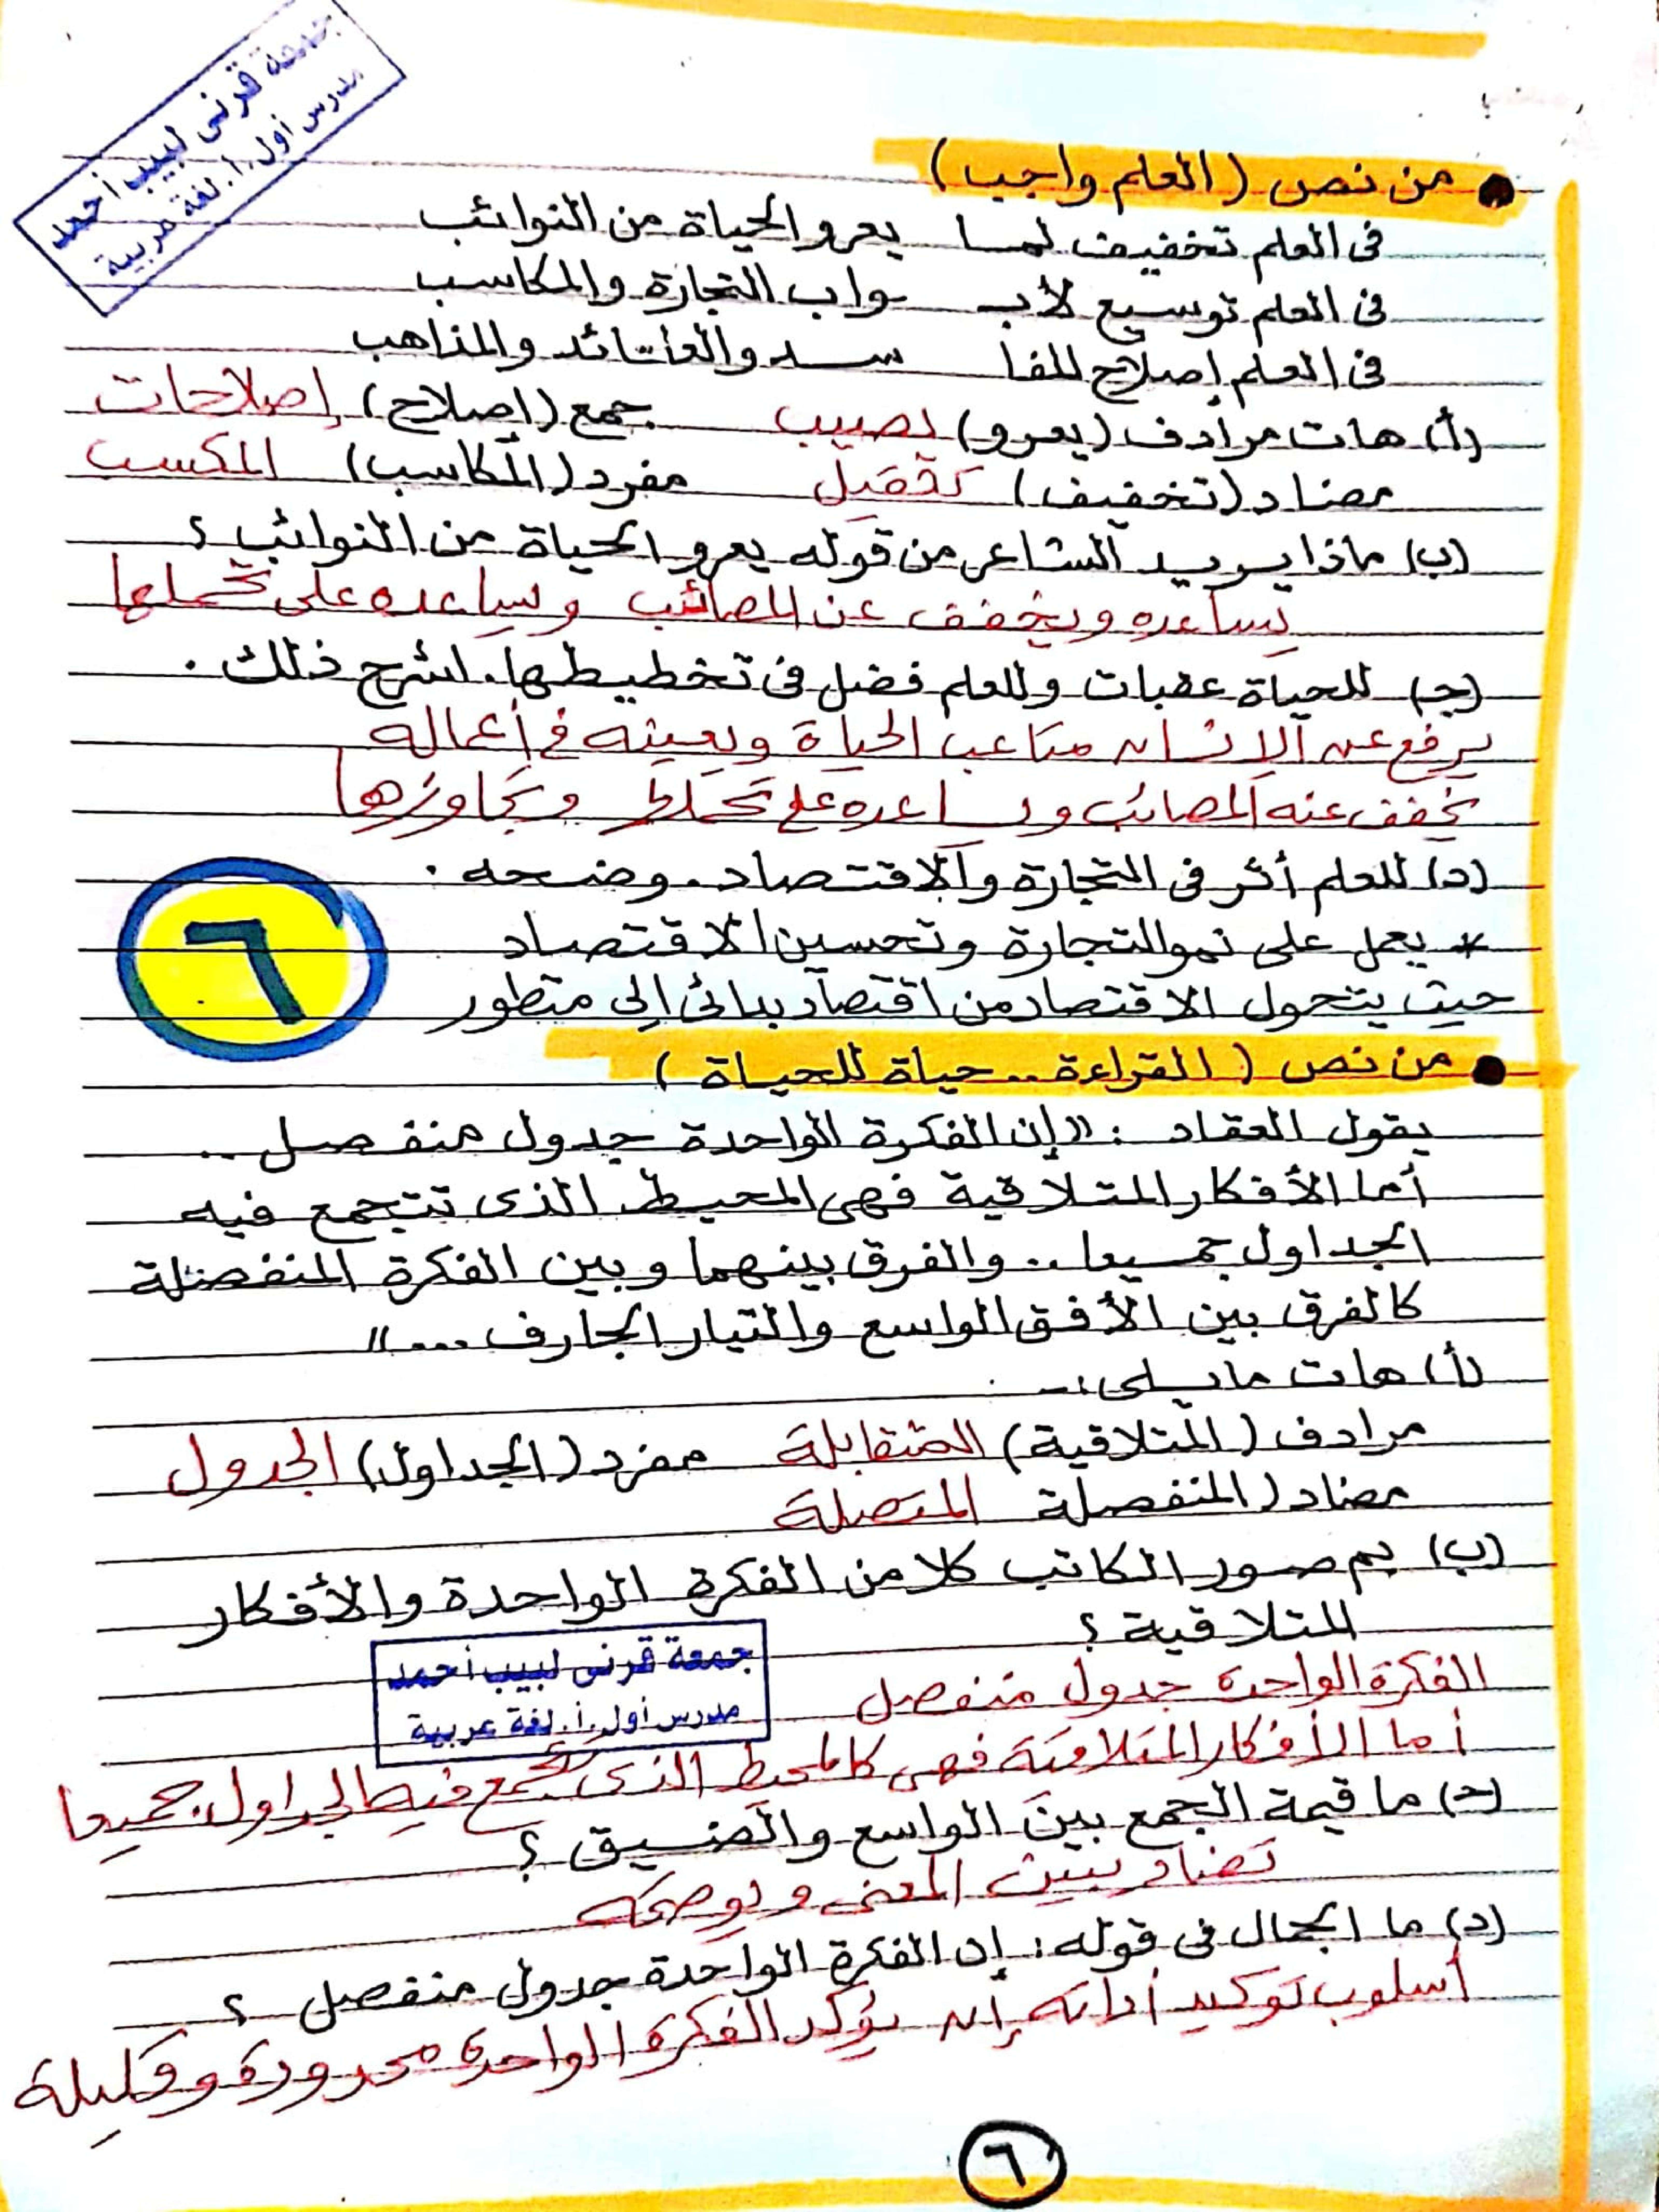 جمعة قرنى لبيب أحمد
مدرس أول.أ. لغة عربية
من نص (العلم واجب)
فى العلم تخفيف لما يعرو الحياة من النوائب
فى العلم توسيع لأبـ ـواب التجارة والمكاسب
فى العلم إصلاح للفا سد والعقائد والمذاهب
(أ) هات مرادف (يعرو) يصيب جمع (إصلاح) إصلاحات
مضاد (تخفيف) تحميل مفرد (المكاسب) المكسب
(ب) ماذا يريد الشاعر من قوله يعرو الحياة من النوائب؟
يساعده ويخفف عن المصائب ويساعده على تحملها
(ج) للحياة عقبات وللعلم فضل فى تخطيطها. اشرح ذلك.
يرفع عن الإنسان متاعب الحياة ويعينه فى أعماله
يخفف عنه المصائب ويساعده على تحملها وتجاوزها
(د) للعلم أثر فى التجارة والاقتصاد. وضحه.
* يعمل على نمو التجارة وتحسين الاقتصاد
حيث يتحول الاقتصاد من اقتصاد بدائى إلى متطور
٦
من نص (القراءة.. حياة للحياة)
يقول العقاد: "إن الفكرة الواحدة جدول منفصل..
أما الأفكار المتلاقية فهى المحيط الذى تتجمع فيه
الجداول جميعا.. والفرق بينهما وبين الفكرة المنفصلة
كالفرق بين الأفق الواسع والتيار الجارف...."
(أ) هات ما يلى:-
مرادف (المتلاقية) المتقابلة مفرد (الجداول) الجدول
مضاد (المنفصلة المتصلة
(ب) بم صور الكاتب كلا من الفكرة الواحدة والأفكار
المتلاقية؟
جمعة قرنى لبيب أحمد
مدرس أول.أ. لغة عربية
الفكرة الواحدة جدول منفصل
أما الأفكار المتلاقية فهى كالمحيط الذى تتجمع فيه الجداول جميعا
(ج) ما قيمة الجمع بين الواسع والضيق؟
تضاد يبين المعنى ويوضحه
(د) ما الجمال فى قوله: إن الفكرة الواحدة جدول منفصل؟
أسلوب توكيد أداته إن يؤكد الفكرة الواحدة محدودة وقليلة
٦